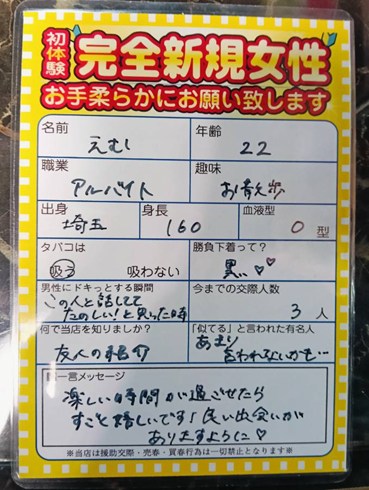 初体験 完全新規女性
お手柔らかにお願い致します
名前 えむし 年齢 22
職業 アルバイト 趣味 お散歩
出身 埼玉 身長 160 血液型 O型
タバコは 勝負下着って?
吸う 吸わない 黒♡♡
男性にドキっとする瞬間 今までの交際人数
この人と話してて
たのしい!と思った時 3人
何で当店を知りましたか? 「似てる」と言われた有名人
友人の紹介 あまり
言われないかも…
一言メッセージ
楽しい時間が過ごせたら
すごく嬉しいです!良い出会いが
ありますように♡
※当店は援助交際・売春・買春行為は一切禁止となります※